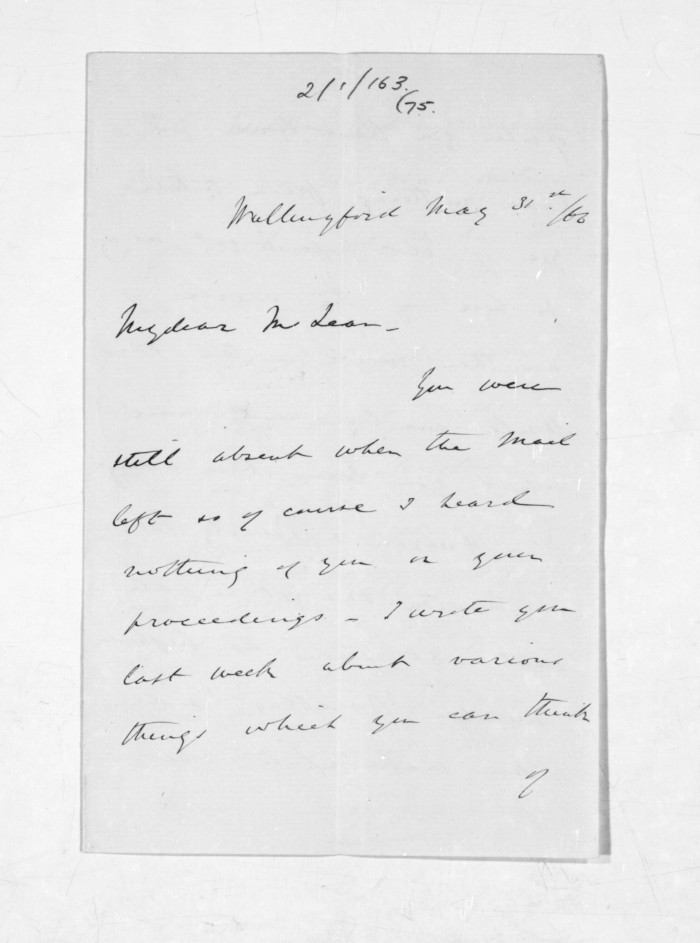 2/1/163.
(75.
Wallingford May 31st/66
My dear McLean -
You were
still absent when the Mail
left so of course I heard
nothing of you or your
proceedings - I wrote you
last week about various
things which you can think
of